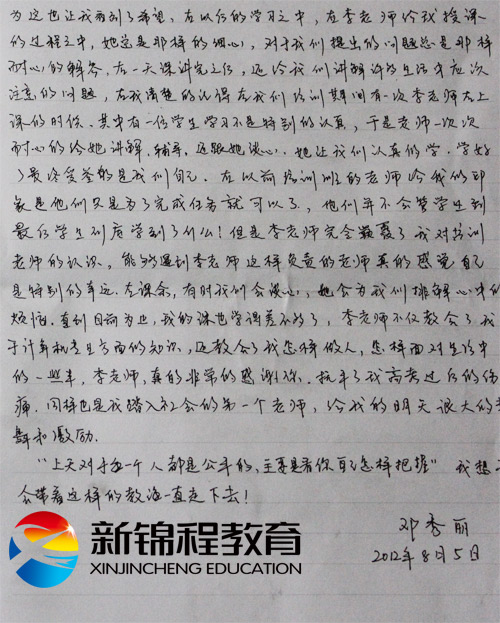 为这也让我看到了希望，在以后的学习之中，在李老师给我授课
的过程之中，她总是那样的细心，对于我们提出的问题总是那样
耐心的解答，在一天课讲完之后，还给我们讲解讲的生活中应次
注意的问题，在我清楚的记得在我们培训其间有一次李老师在上
课的时候，其中有一位学生学习不是特别的认真，于是老师一次次
耐心的给她讲解，辅导，还跟她谈心，她让我们认真的学，学好
了最终受益的是我们自己。在以前培训班的老师给我的印
象是他们只是为了完成任务就可以了，他们并不会管学生到
最后学生到底学到了什么！但是李老师完全颠覆了我对培训
老师的认识，能够遇到李老师这样负责的老师真的感觉自己
是特别的幸运。在课余，有时我们会谈心，她会为我们排解心中的
烦恼。直到目前为止，我的课也学得差不多了，李老师不仅教会了我
于计算机专业方面的知识，还教会了我怎样做人，怎样面对生活中
的一些事，李老师，真的非常的感谢你。抚平了我高考过后的伤
痛，同样也是我踏入社会的第一个老师，给我的明天很大的
舞和激励。
“上天对于每一个人都是公平的，主要是看你自己怎样把握”我想
会带着这样的教诲一直走下去！
邓秀丽
2012年8月5日
新锦程教育
XINJINCHENG EDUCATION